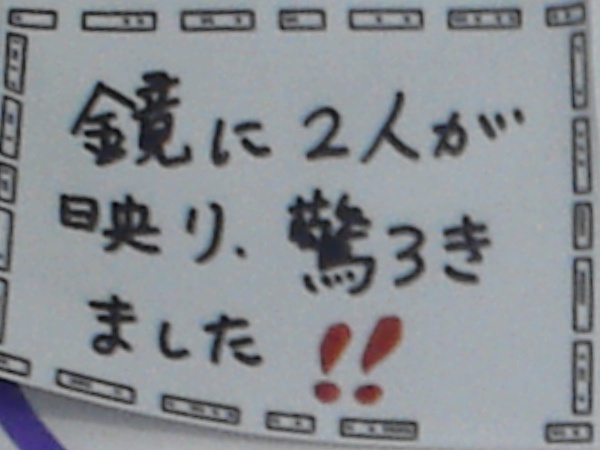 鏡に2人が
映り、驚ろき
ました!!